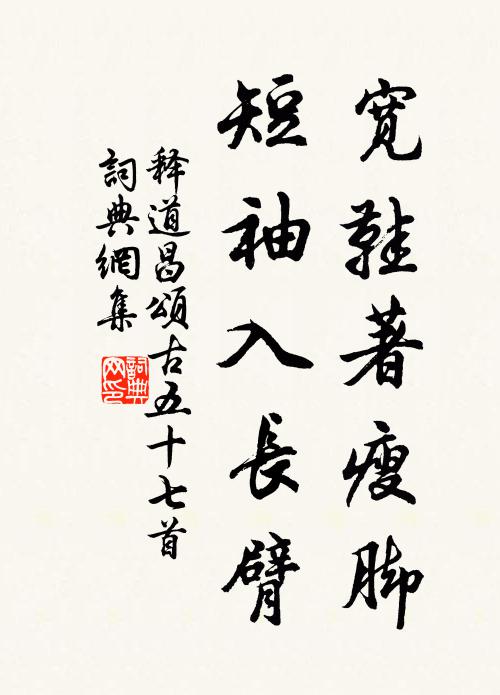 寛鞋著瘦脚
短袖入長臂
释道昌頌古五十七首
詞典網集
詞典网印